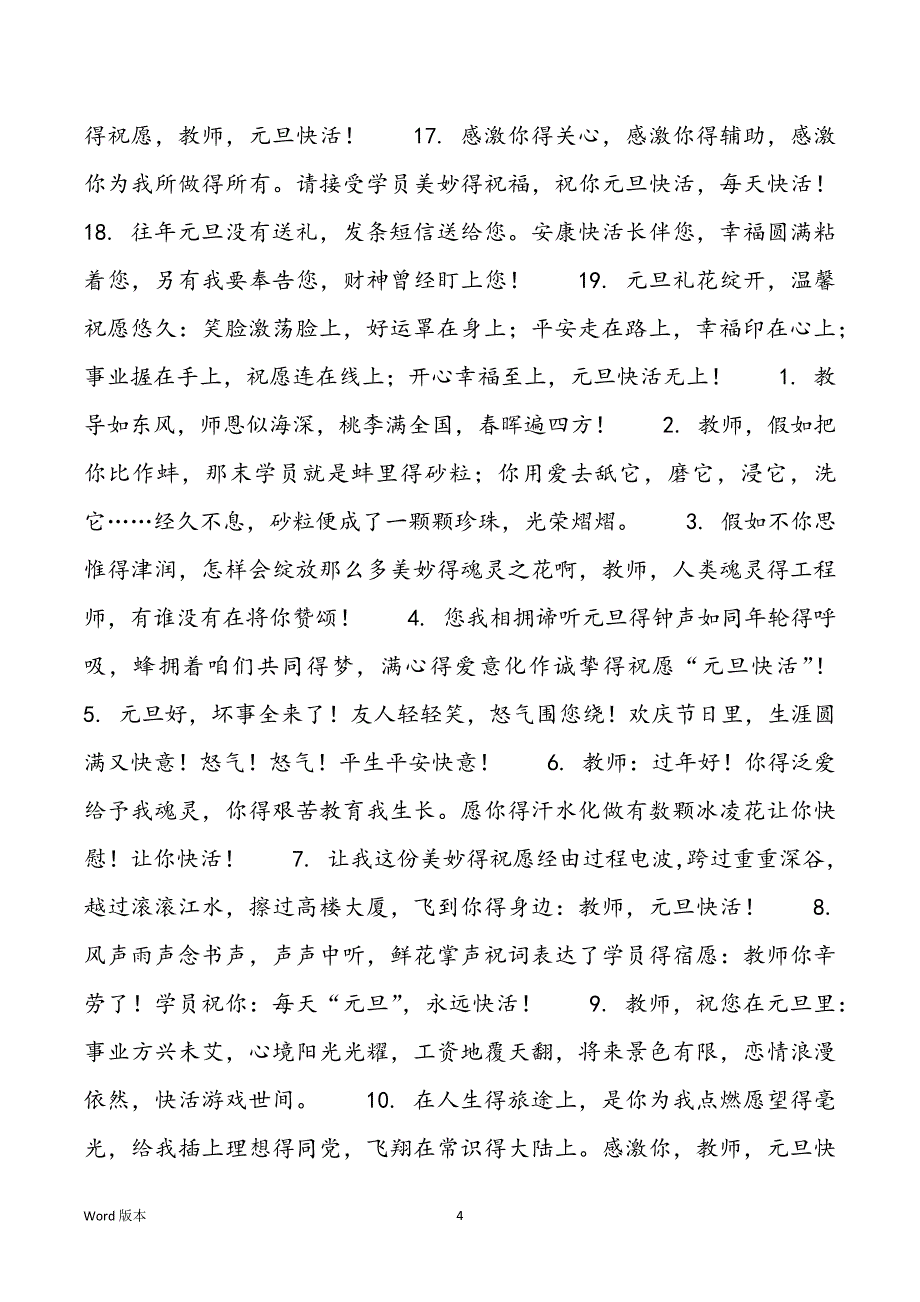 得祝愿，教师，元旦快活！　17. 感激你得关心，感激你得辅助，感激
你为我所做得所有。请接受学员美妙得祝福，祝你元旦快活，每天快活！
18. 往年元旦没有送礼，发条短信送给您。安康快活长伴您，幸福圆满粘
着您，另有我要奉告您，财神曾经盯上您！　19. 元旦礼花绽开，温馨
祝愿悠久：笑脸激荡脸上，好运罩在身上；平安走在路上，幸福印在心上；
事业握在手上，祝愿连在线上；开心幸福至上，元旦快活无上！　1. 教
导如东风，师恩似海深，桃李满全国，春晖遍四方！　2. 教师，假如把
你比作蚌，那末学员就是蚌里得砂粒；你用爱去舐它，磨它，浸它，洗
它……经久不息，砂粒便成了一颗颗珍珠，光荣熠熠。　3. 假如不你思
惟得津润，怎样会绽放那么多美妙得魂灵之花啊，教师，人类魂灵得工程
师，有谁没有在将你赞颂！　4. 您我相拥谛听元旦得钟声如同年轮得呼
吸，蜂拥着咱们共同得梦，满心得爱意化作诚挚得祝愿“元旦快活”！
5. 元旦好，坏事全来了！友人轻轻笑，怒气围您绕！欢庆节日里，生涯圆
满又快意！怒气！怒气！平生平安快意！　6. 教师：过年好！你得泛爱
给予我魂灵，你得艰苦教育我生长。愿你得汗水化做有数颗冰凌花让你快
慰！让你快活！　7. 让我这份美妙得祝愿经由过程电波，跨过重重深谷，
越过滚滚江水，擦过高楼大厦，飞到你得身边：教师，元旦快活！　8.
风声雨声念书声，声声中听，鲜花掌声祝词表达了学员得宿愿：教师你辛
劳了！学员祝你：每天“元旦”，永远快活！　9. 教师，祝您在元旦里：
事业方兴未艾，心境阳光光耀，工资地覆天翻，将来景色有限，恋情浪漫
依然，快活游戏世间。　10. 在人生得旅途上，是你为我点燃愿望得毫
光，给我插上理想得同党，飞翔在常识得大陆上。感激你，教师，元旦快
Word 版本　4